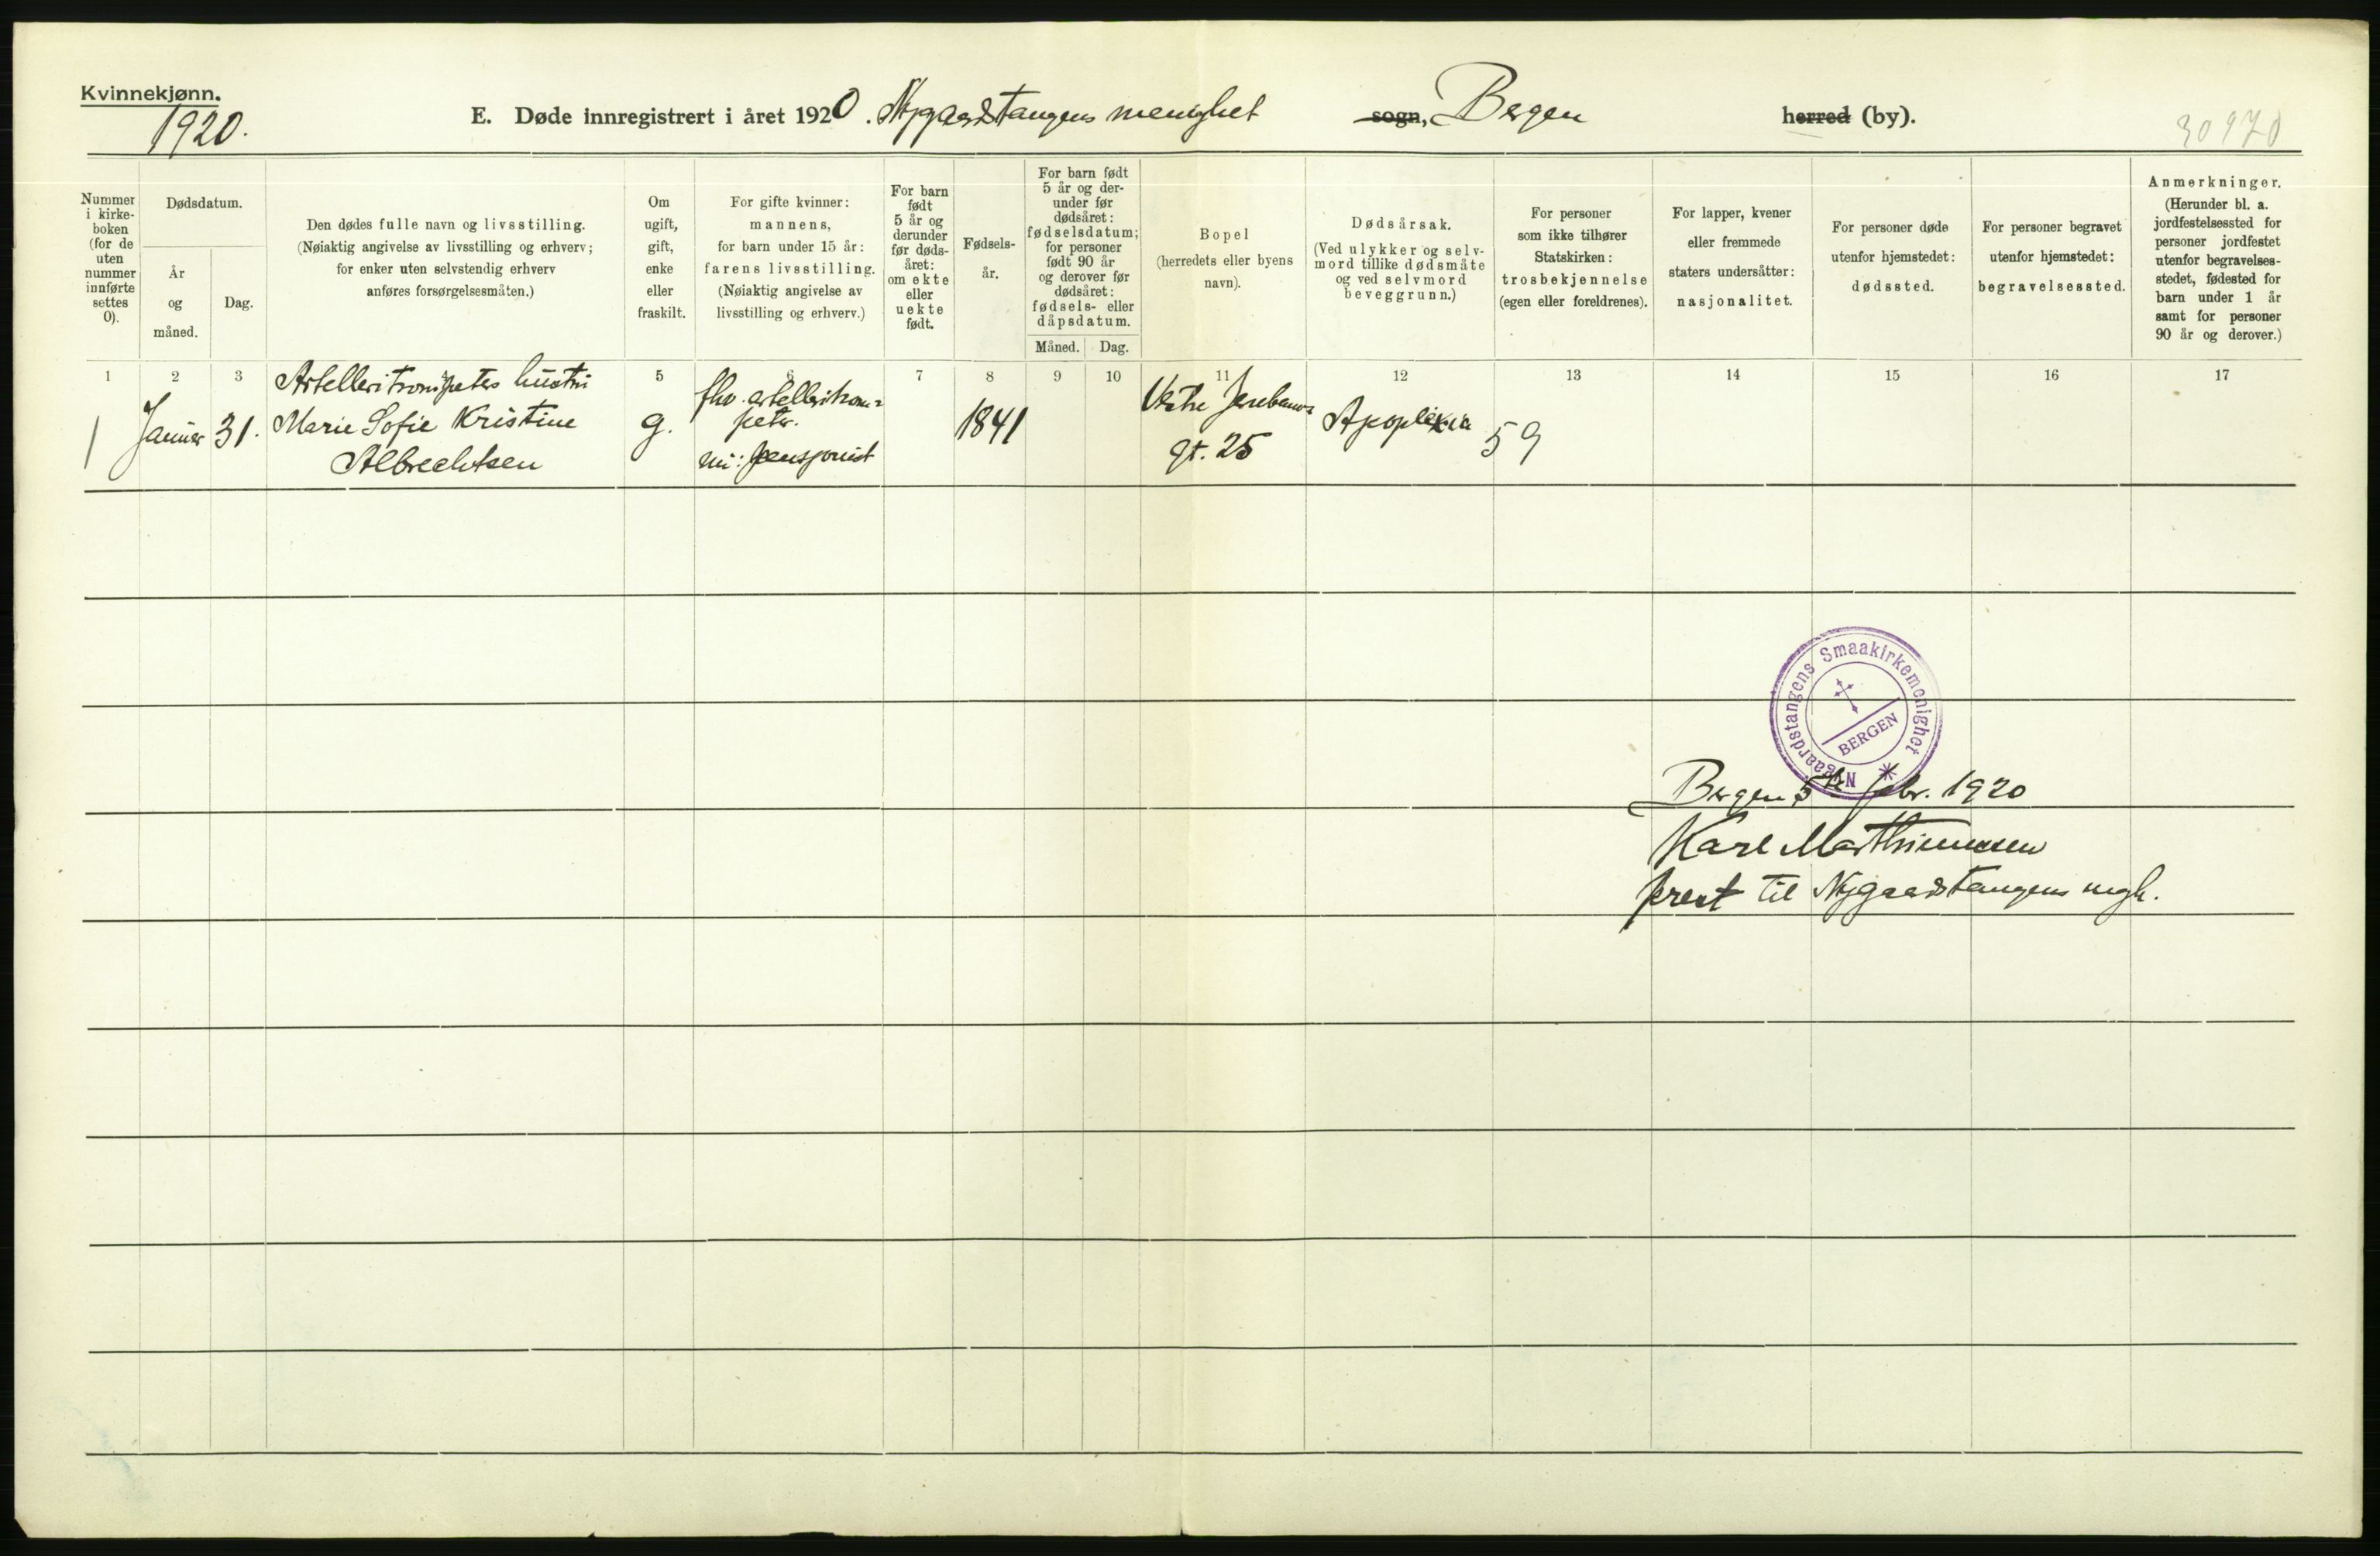 Kvinnekjønn.
1920.
E. Døde innregistrert i året 1920. Nygaardstangens menighet sogn, Bergen herred (by).
30970
Nummer i kirke-boken (for de uten nummer innførte settes 0).
Dødsdatum.
År og måned.
Dag.
Den dødes fulle navn og livsstilling.
(Nøiaktig angivelse av livsstilling og erhverv;
for enker uten selvstendig erhverv
anføres forsørgelsesmåten.)
Om ugift, gift, enke eller fraskilt.
For gifte kvinner:
mannens,
for barn under 15 år:
farens livsstilling.
(Nøiaktig angivelse av
livsstilling og erhverv.)
For barn født 5 år og derunder før døds-året: om ekte eller uekte født.
Fødsels-år.
For barn født
5 år og der-
under før
dødsåret:
fødselsdatum;
for personer
født 90 år
og derover før
dødsåret:
fødsels- eller
dåpsdatum.
Måned. Dag.
Bopel
(herredets eller byens
navn).
Dødsårsak.
(Ved ulykker og selv-
mord tillike dødsmåte
og ved selvmord
beveggrunn.)
For personer
som ikke tilhører
Statskirken:
trosbekjennelse
(egen eller foreldrenes).
For lapper, kvener
eller fremmede
staters undersåtter:
nasjonalitet.
For personer døde
utenfor hjemstedet:
dødssted.
For personer begravet
utenfor hjemstedet:
begravelsessted.
Anmerkninger.
(Herunder bl. a.
jordfestelsessted for
personer jordfestet
utenfor begravelses-
stedet, fødested for
barn under 1 år
samt for personer
90 år og derover.)
1 2 3 5 6 7 8 9 10 11 12 13 14 15 16 17
1
Januar 31.
Artelleritrompeters hustru
Marie Sofie Kristine
Albrechtsen
g.
fhv. artelleritrom=
peter.
nu: pensjonist
1841
Vestre
gt. 25
Apoplexia
59
Nygaardstangens Smaakirkemenighet
BERGEN
Bergen 5te febr. 1920
Karl Marthinussen
prest til Nygaardstangens mgh.